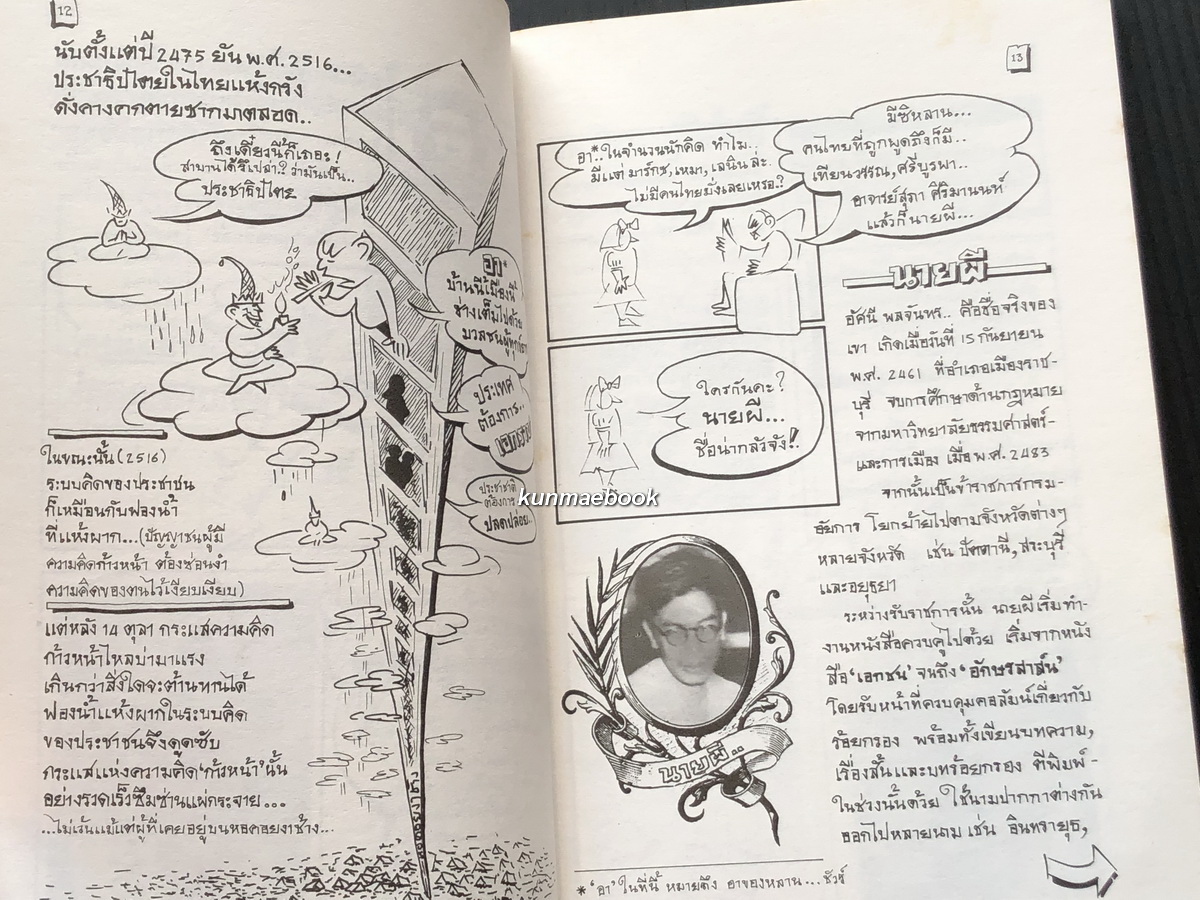 12
นับตั้งแต่ปี 2475 ยัน พ.ศ. 2516...
ประชาธิปไตยในไทยแห้งกรัง
ดั่งคางคกตายซากมาตลอด..
ถึงเดี๋ยวนี้ก็เถอะ!
สาบานได้รึเปล่า? ว่ามันเป็น..
ประชาธิปไตย
อา*
บ้านนี้เมืองนี้
ช่างเต็มไปด้วย
มวลชนผู้ทุกข์
ประเทศ
ต้องการ..
เอกราช
ประชาชาติ
ต้องการ
ปลดปล่อย..
ในขณะนั้น (2516)
ระบบคิดของประชาชน
ก็เหมือนกับฟองน้ำ
ที่แห้งผาก...(ปัญญาชนผู้มี
ความคิดก้าวหน้า ต้องซ่อนงำ
ความคิดของตนไว้เงียบเงียบ)
แต่หลัง 14 ตุลา กระแสความคิด
ก้าวหน้าไหลบ่ามาแรง
เกินกว่าสิ่งใดจะต้านทานได้
ฟองน้ำแห้งผากในระบบคิด
ของประชาชนจึงดูดซับ
กระแสแห่งความคิด'ก้าวหน้า'นั้น
อย่างรวดเร็วซึมซ่านแผ่กระจาย...
...ไม่เว้นแม้แต่ผู้ที่เคยอยู่บนหอคอยงาช้าง...
หอคอยงาช้าง
kunmaebook
13
อา*..ในจำนวนนักคิด ทำไม
มีแต่ มาร์กซ, เหมา, เลนิน ล่ะ
ไม่มีคนไทยมั่งเลยเหรอ.?
มีซิหลาน...
คนไทยที่ถูกพูดถึงก็มี..
เทียนวรรณ, ศรีบูรพา..
อาจารย์สุภา ศิริมานนท์
แล้วก็ นายผี...
ใครกันคะ?
นายผี...
ชื่อน่ากลัวจัง!
นายผี
อัศนี พลจันทร.. คือชื่อจริงของ
เขา เกิดเมื่อวันที่ 15 กันยายน
พ.ศ. 2461 ที่อำเภอเมืองราช-
บุรี จบการศึกษาด้านกฎหมาย
จากมหาวิทยาลัยธรรมศาสตร์-
และการเมือง เมื่อ พ.ศ. 2483
จากนั้นเป็นข้าราชการกรม-
อัยการ โยกย้ายไปตามจังหวัดต่างๆ
หลายจังหวัด เช่น ปัตตานี, สระบุรี
และอยุธยา
ระหว่างรับราชการนั้น นายผีเริ่มทำ-
งานหนังสือควบคู่ไปด้วย เริ่มจากหนัง
สือ 'เอกชน' จนถึง 'อักษรสาส์น'
โดยรับหน้าที่ควบคุมคอลัมน์เกี่ยวกับ
ร้อยกรอง พร้อมทั้งเขียนบทความ,
เรื่องสั้นและบทร้อยกรอง ตีพิมพ์-
ในช่วงนั้นด้วย ใช้นามปากกาต่างกัน
ออกไปหลายนาม เช่น อินทรายุธ,
นายผี..
* 'อา' ในที่นี้ หมายถึง อาของหลาน... ชัวร์